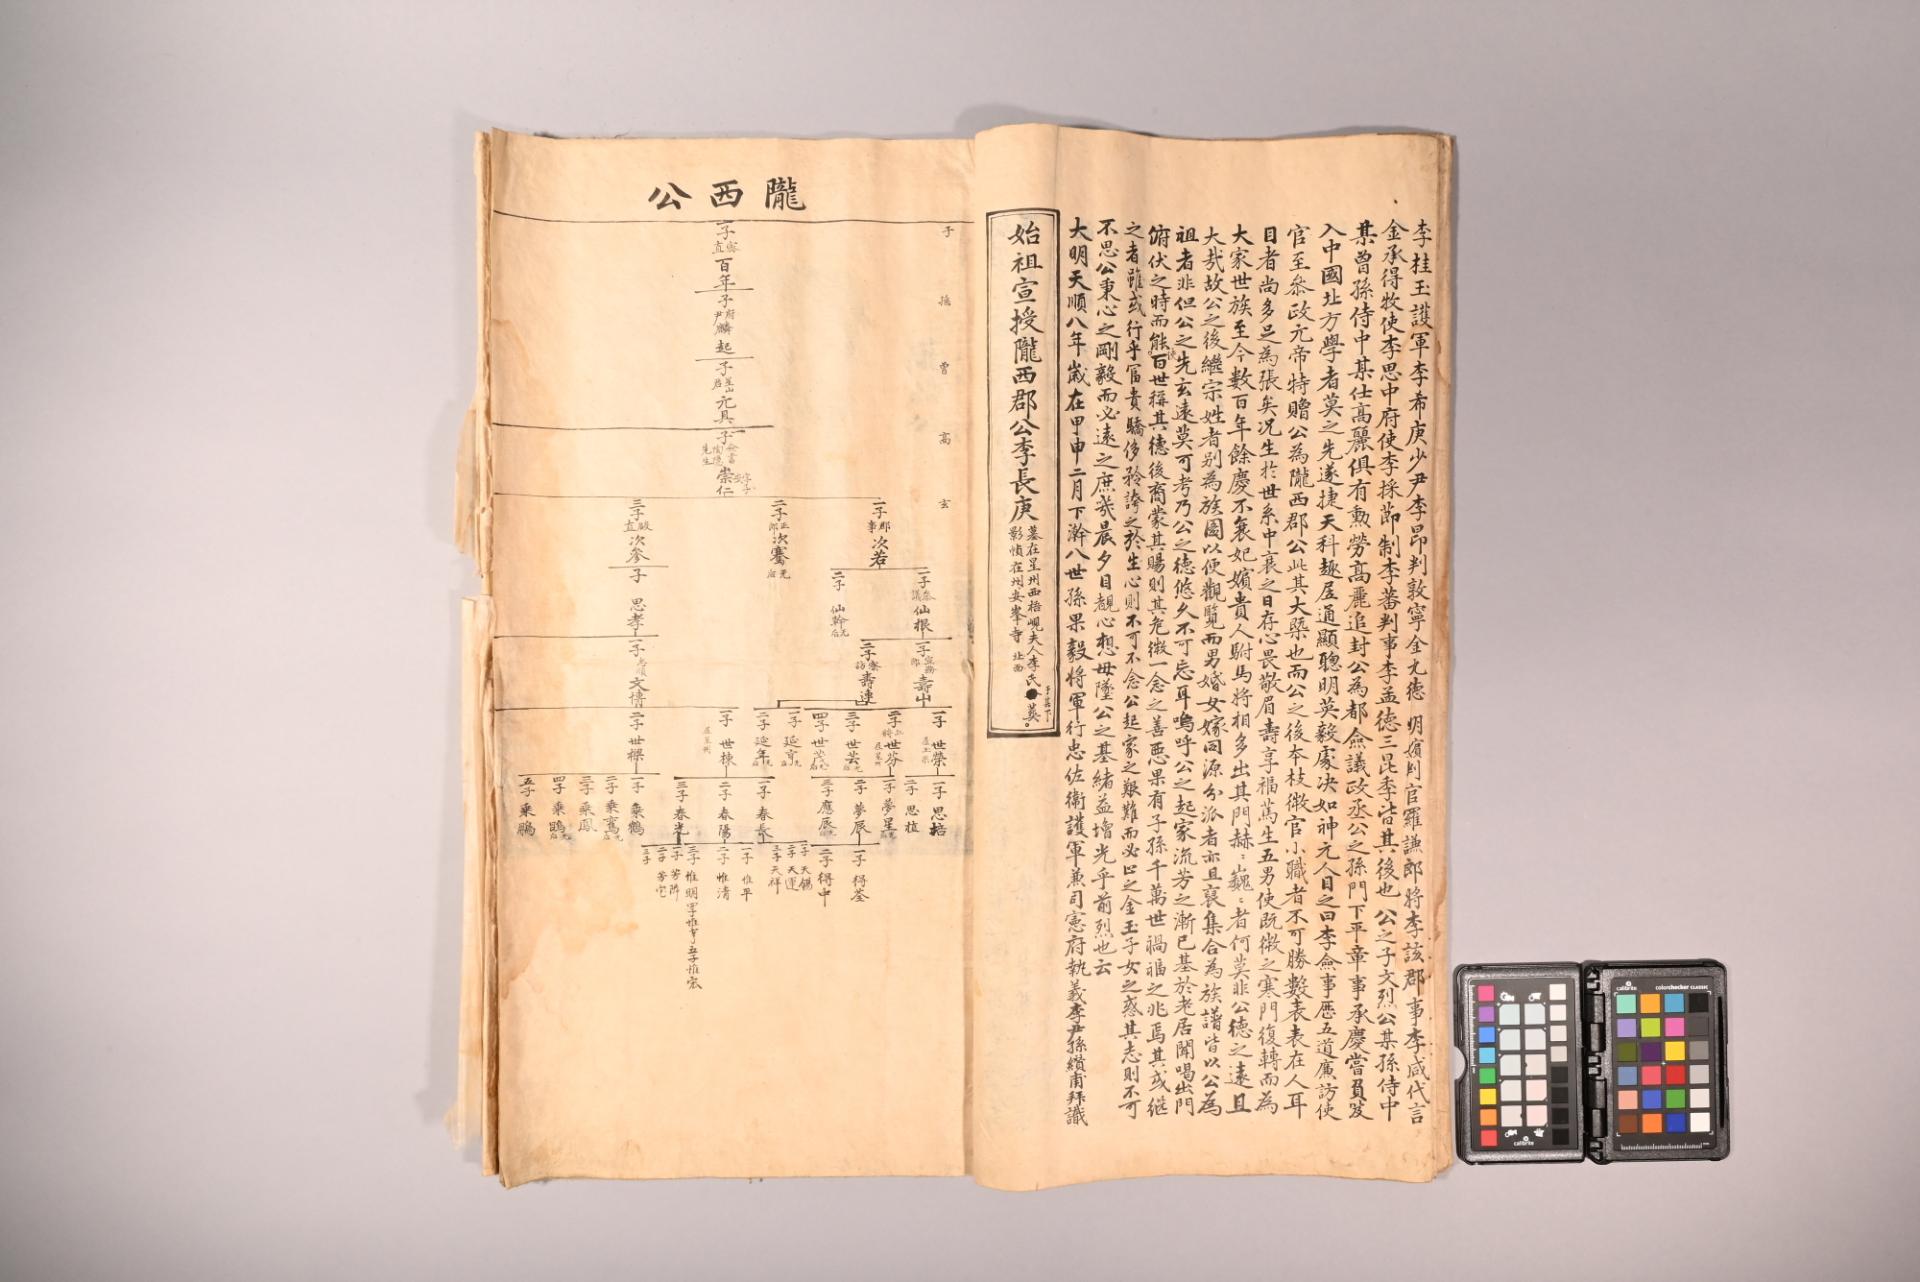 李桂玉護軍李希庚少尹李昂判敦寧金允德 明嬪判官羅謙郎將李該郡事李咸代言
金承得牧使李思中府使李採節制李蕃判事李孟德三昆季皆其後也 公之子文烈公某孫侍中
某曾孫侍中某仕高麗俱有勳勞高麗追封公為都僉議政丞公之孫門下平章事承慶當員笈
入中國北方學者莫之先遂捷天科趣屋通顯聰明英毅處决如神元人目之曰李僉事歷五道廉訪使
官至叅政元帝特贈公為隴西郡公此其大槩也而公之後本枝微官小職者不可勝數表表在人耳
目者尚多足為張矣况生於世系中衰之日存心畏敬眉壽享福篤生五男使既微之寒門復轉而為
大家世族至今數百年餘慶不衰妃嬪貴人駙馬將相多出其門赫:巍:者何莫非公德之遠且
大哉故公之後繼宗姓者别為族圖以便觀覽而男婚女嫁同源分派者亦且裒集合為族譜皆以公為
祖者非但公之先玄遠莫可考乃公之德悠久不可忘耳嗚呼公之起家流芳之漸已基於老居聞喝出門
俯伏之時而能百世稱其德後裔蒙其賜則其危微一念之善惡果有子孫千萬世禍福之兆焉其或継
之者雖或行乎富貴驕侈矜誇之於生心則不可不念公起家之艱難而必以之金玉子女之惑其志則不可
不思公秉心之剛毅而必遠之庶㡬晨夕目覩心想毋墜公之基緒益增光乎前烈也云
大明天順八年歲在甲申二月下澣八世孫果毅將軍行忠佐衛護軍兼司憲府執義李尹孫纘甫拜識
始祖宣授隴西郡公李長庚
墓在星州西梧峴夫人李氏
影幀在州安峯寺 北西
隴西公
子
孫
曾
高
玄
子 百年
子 府尹 麟起
子 星山君 元具
子 崇仁
一子 郡事 次若
二子 正郎 次騫 无后
三子 殿直 次參
一子 叅議 仙根
二子 仙幹 无后
子 思孝
一子 宣務郎 壽山
二子 察訪 壽連
一子 文博
一子 世榮
二子 世芬
三子 世芸 无后
四子 世茂
一子 延亨
二子 延年
一子 世棟
二子 世樑
一子 思培
二子 思植
一子 夢星
二子 夢辰
三子 應辰
一子 春長
二子 春陽
三子 春光
一子 乘鶴
二子 乘鸞 无后
三子 乘鳳
四子 乘鵾 无后
五子 乘鵬
一子 得荃
二子 得中
一子 天錫
二子 天運
三子 天祥
一子 惟平
二子 惟清
三子 惟明 四子惟亨 五子惟宏
一子
二子
三子